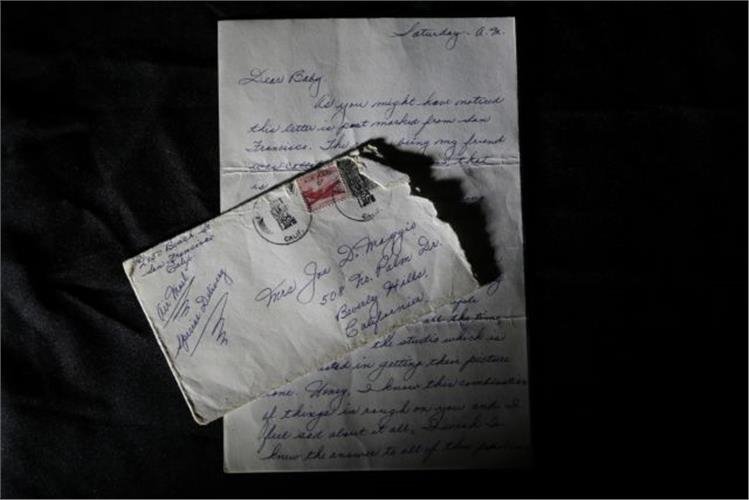 Saturday. A.M.
Dear Baby,
As you might have noticed
this letter is post marked from San
Francisco. The being my friend
was that
is
CALIF.
2150 Beach St
San Francisco
Calif.
Air Mail
Special Delivery
Mrs Joe D. Maggio
508 No. Palm Dr.
Beverly Hills,
California
all the time
the studio which is
in getting their picture
done. Honey, I know this combination
of things is rough on you and I
feel sad about it all. I wish I
knew the answer to all of this